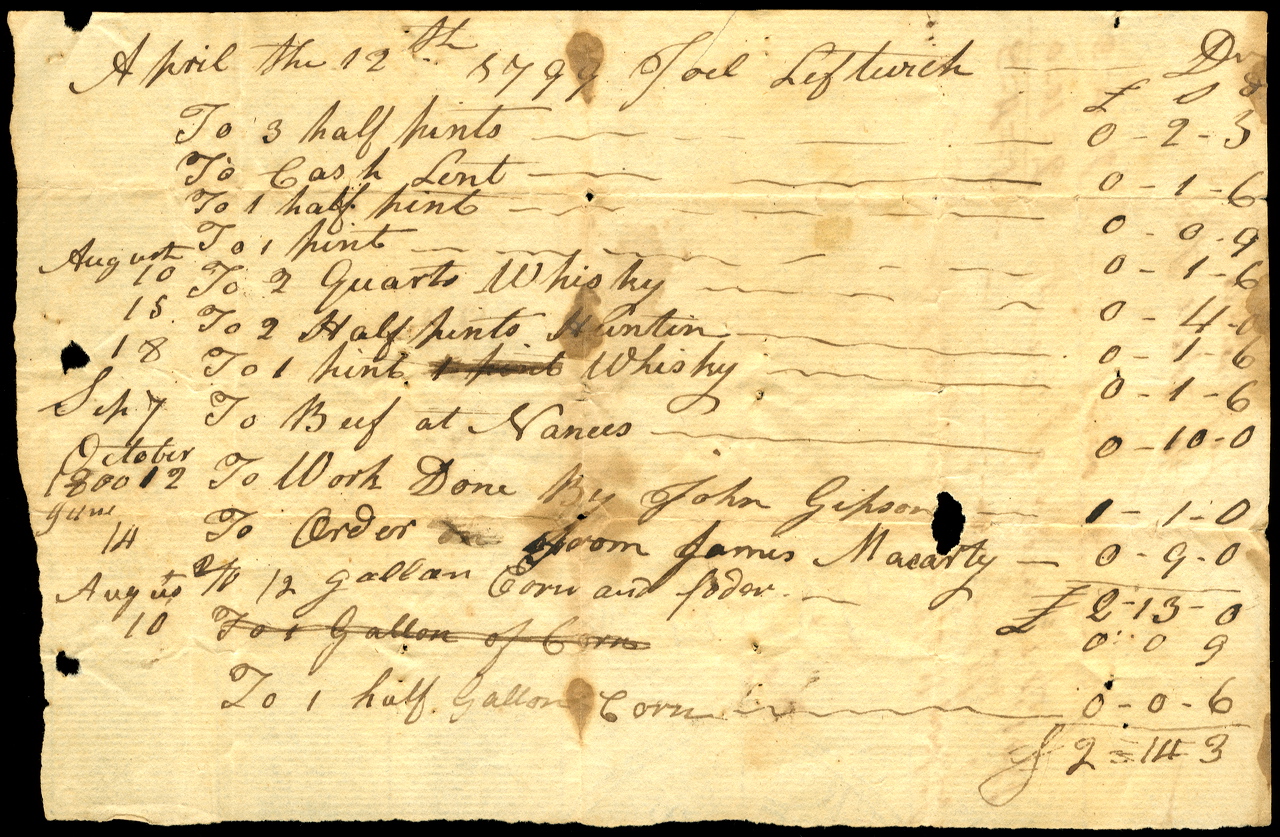 April the 12th 1799 Joel Leftwich Dr
£ s d
To 3 half pints 0-2-3
To Cash Lent 0-1-6
To 1 half pint 0-0-9
To 1 pint 0-1-6
August 10 To 2 Quarts Whisky 0-4-0
15 To 2 Half pints Huntin 0-1-6
18 To 1 pint 1 pint Whisky 0-1-6
Sep 7 To Beef at Nances 0-10-0
October 12 To Work Done By John Gipson 1-1-0
1800 June 14 To Order from James Macarty 0-9-0
£ 2-13-0
August 10 To 1/2 gallan Corn and foder £ 0-0 9
To 1 Gallon of Corn
To 1 half Gallon Corn 0-0-6
£ 2=14 3